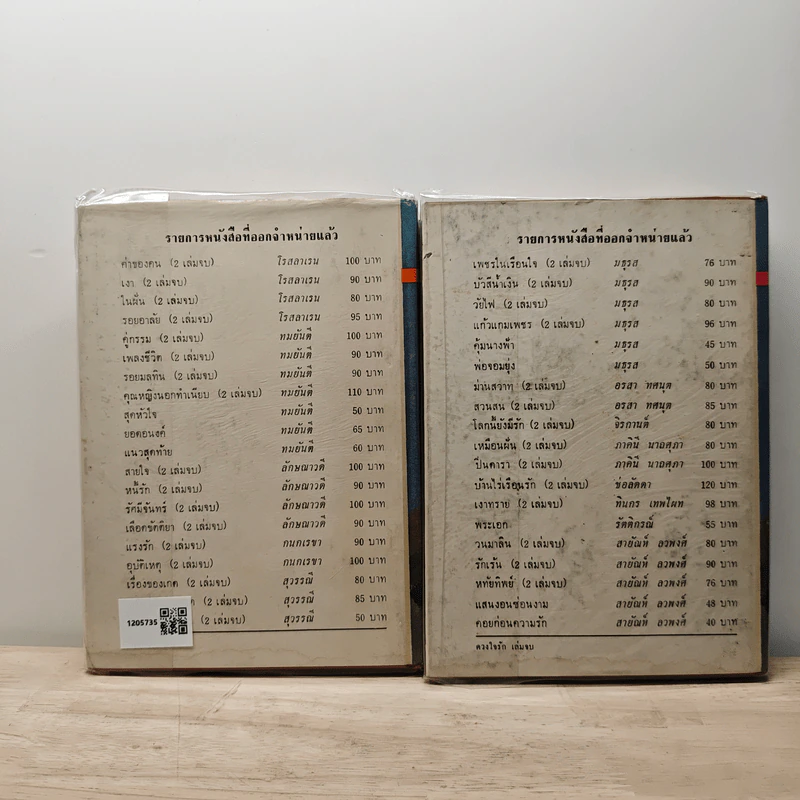 รายการหนังสือที่ออกจำหน่ายแล้ว
ค่าของคน (2 เล่มจบ) โรสลาเรน 100 บาท
เงา (2 เล่มจบ) โรสลาเรน 90 บาท
ในฝัน (2 เล่มจบ) โรสลาเรน 80 บาท
รอยอาลัย (2 เล่มจบ) โรสลาเรน 95 บาท
คู่กรรม (2 เล่มจบ) ทมยันตี 100 บาท
เพลงชีวิต (2 เล่มจบ) ทมยันตี 90 บาท
รอยมลทิน (2 เล่มจบ) ทมยันตี 90 บาท
คุณหญิงนอกทำเนียบ (2 เล่มจบ) ทมยันตี 110 บาท
สุดหัวใจ ทมยันตี 50 บาท
ยอดอนงค์ ทมยันตี 65 บาท
แนวสุดท้าย ทมยันตี 60 บาท
สายใจ (2 เล่มจบ) ลักษณาวดี 100 บาท
หนี้รัก (2 เล่มจบ) ลักษณาวดี 90 บาท
รัศมีจันทร์ (2 เล่มจบ) ลักษณาวดี 100 บาท
เลือดขัตติยา (2 เล่มจบ) ลักษณาวดี 90 บาท
แรงรัก (2 เล่มจบ) กนกเรขา 90 บาท
อุบัติเหตุ (2 เล่มจบ) กนกเรขา 100 บาท
เรื่องของเกด (2 เล่มจบ) สุวรรณี 80 บาท
(2 เล่มจบ) สุวรรณี 85 บาท
(2 เล่มจบ) สุวรรณี 50 บาท
1205735
รายการหนังสือที่ออกจำหน่ายแล้ว
เพชรในเรือนใจ (2 เล่มจบ) มธุรส 76 บาท
บัวสีน้ำเงิน (2 เล่มจบ) มธุรส 90 บาท
วัยไฟ (2 เล่มจบ) มธุรส 80 บาท
แก้วแกมเพชร (2 เล่มจบ) มธุรส 96 บาท
คุ้มนางฟ้า มธุรส 45 บาท
พ่อจอมยุ่ง มธุรส 50 บาท
ม่านสวาท (2 เล่มจบ) อรสา ทศนุต 80 บาท
สวนสน (2 เล่มจบ) อรสา ทศนุต 85 บาท
โลกนี้ยังมีรัก (2 เล่มจบ) จิรกานต์ 80 บาท
เหมือนฝัน (2 เล่มจบ) ภาคินี นาถศุภา 80 บาท
ปิ่นดารา (2 เล่มจบ) ภาคินี นาถศุภา 100 บาท
บ้านไร่เรือนรัก (2 เล่มจบ) ช่อลัดดา 120 บาท
เงาทราย (2 เล่มจบ) ทินกร เทพไผท 98 บาท
พระเอก รัตติกรณ์ 55 บาท
วนมาลิน (2 เล่มจบ) สายัณห์ ลวพงศ์ 80 บาท
รักเร้น (2 เล่มจบ) สายัณห์ ลวพงศ์ 90 บาท
หทัยทิพย์ (2 เล่มจบ) สายัณห์ ลวพงศ์ 76 บาท
แสนงอนซ่อนงาม สายัณห์ ลวพงศ์ 48 บาท
คอยค่อนความรัก สายัณห์ ลวพงศ์ 40 บาท
ดวงใจรัก เล่มจบ